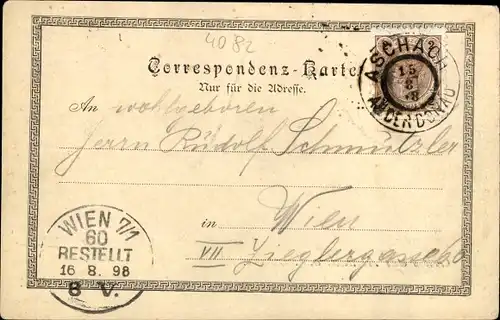 4082
Correspondenz-Karte
Nur für die Adresse.
ASCHACH
15
8
98
AN DER DONAU
An wohlgeboren
Herrn Rudolf Schmutzler
in Wien
VII Zieglergasse
WIEN 7/1
60
BESTELLT
16 8. 98
8 V.